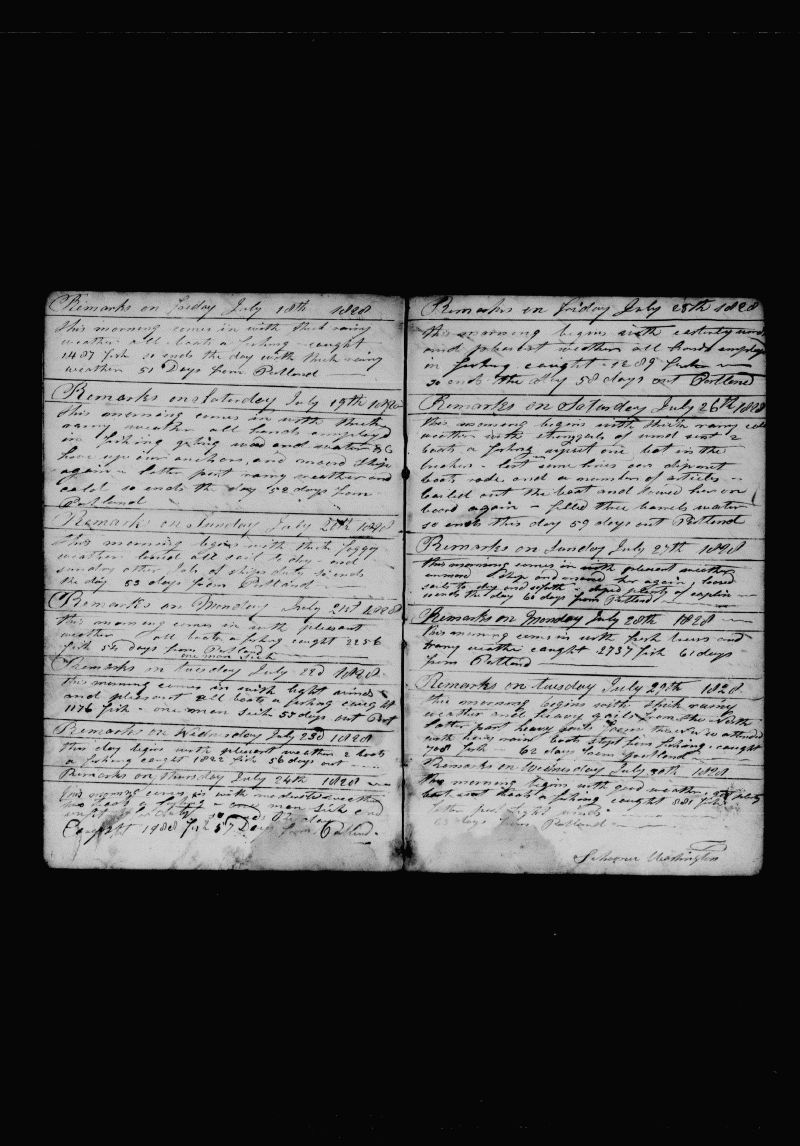 Remarks on Friday July 18th 1828
this morning comes in with thick rainy
weather all boats a fishing caught
1487 fish so ends the day with thick rainy
weather 51 Days from Portland
Remarks on Saturday July 19th 1828
this morning comes in with thick
rainy weather all hands employed
in fishing geting wood and water &c
hove up our anchors and moord ship
again latter part rainy weather and
cold so ends the day 52 days from
Portland
Remark on Sunday July 20th 1828
this morning begins with thick foggy
weather loosd all sail to dry and
sundry other Jobs of ships duty so ends
the day 53 days from Portland
Remarks on Munday July 21st 1828
this morning comes in with plesant
weather all boats a fishing caught 2256
fish 54 days from Portland
one man sick
Remarks on tuesday July 22d 1828
this morning comes in with light winds
and plesant all boats a fishing caught
1176 fish one man sick 55 days out Port
Remarks on Wednesday July 23d 1828
this day begins with plesent weather 2 boats
a fishing caught 1822 fish 56 days out
Remarks on Thursday July 24th 1828
this morning comes in with moderate weather
two boats a fishing one man sick and
unfit for duty
Caught 1988 fish 57 Days from Portland
Remarks on Friday July 25th 1828
this morning begins with easterly wind
and plesent weather all hands employd
in fishing caught 1289 fish
so ends the day 58 days out Portland
Remarks on Saturday July 26th 1828
this morning begins with thick rainy cold
weather with strong gals of wind sent 2
boats a fishing upset one bot in the
breakers lost some lines oars
boats rode and a number of articles
bailed out the boat and towed her on
board again filled three barrels water
so ends this day 59 days out Portland
Remarks on Sunday July 27th 1828
this morning comes in with plesent weather
unmoord Ship and moored her again loosd
sails to dry and plenty of
ends the day 60 days from Portland
Remarks on Monday July 28th 1828
this morning comes in with fresh breses and
weather caught 2757 fish 61 days
from Portland
Remarks on tuesday July 29th 1828
this morning begins with thick rainy
weather and heavy gails from the North
latter part heavy gails from the attended
with heavy rains boats kept from fishing caught
708 fish 62 days from Portland
Remarks on Wednesday July 30th 1828
this morning begins with good weather
boat sent a fishing caught 881 fish
latter part light winds
63 days from Portland
Schooner Washington